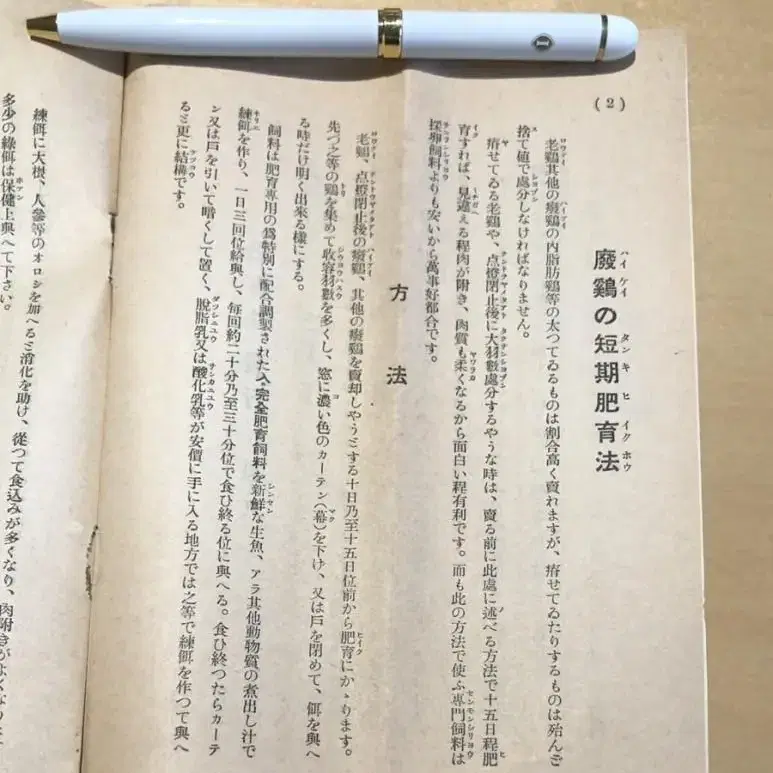 (2)
廢鷄の短期肥育法
老鷄其他の癈鷄の内脂肪鷄等の太つてゐるものは割合高く賣れますが、瘠せてゐたりするものは殆んご
捨て値で處分しなければなりません。
瘠せてゐる老鷄や、点燈閉止後に大羽數處分するやうな時は、賣る前に此處に述べる方法で十五日程肥
育すれば、見違える程肉が附き、肉質も柔くなるから面白い程有利です。而も此の方法で使ふ專門飼料は
採卵飼料よりも安いから萬事好都合です。
方法
老鷄、点燈閉止後の癈鷄、其他の癈鷄を賣却しやうミする十日乃至十五日位前から肥育にかゝります。
先づ之等の鷄を集めて收容羽數を多くし、窓に濃い色のカーテン(幕)を下け、又は戸を閉めて、餌を與へ
る時だけ明く出來る樣にする。
飼料は肥育專用の爲特別に配合調製された入完全肥育飼料を新鮮な生魚、アラ其他動物質の煮出し汁で
練餌を作り、一日三回位給與し、毎回約二十分乃至三十分位で食ひ終る位に與へる。食ひ終つたらカーテ
ン又は戸を引いて暗くして置く、脫脂乳又は酸化乳等が安價に手に入る地方では之等で練餌を作つて與へ
るミ更に結構です。
練餌に大根、人參等のオロシを加へるミ消化を助け、從つて食込みが多くなり、肉附きがよくなりま
多少の綠餌は保健上與へて下さい。